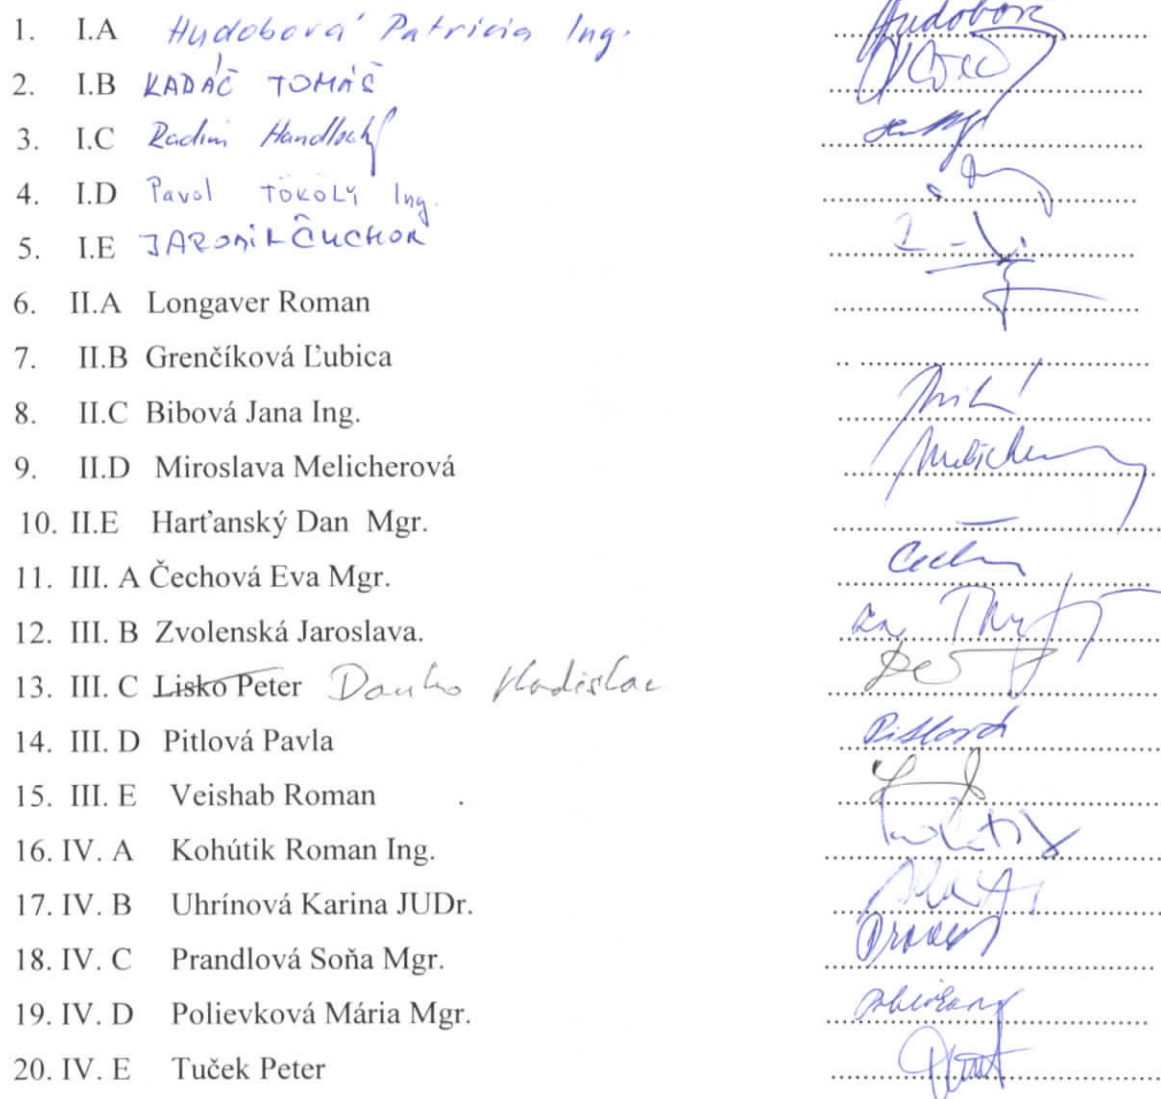 1. I.A Hudobová Patrícia Ing. Hudobová
2. I.B KADÁČ TOMÁŠ
3. I.C Radim Handlosky
4. I.D Pavol TÖKÖLY Ing.
5. I.E JAROMÍR ČUCHOR
6. II.A Longaver Roman
7. II.B Grenčíková Ľubica
8. II.C Bibová Jana Ing.
9. II.D Miroslava Melicherová
10. II.E Harťanský Dan Mgr.
11. III. A Čechová Eva Mgr.
12. III. B Zvolenská Jaroslava.
13. III. C Lisko Peter Danko Vladislav
14. III. D Pitlová Pavla Pitlová
15. III. E Veishab Roman
16. IV. A Kohútik Roman Ing.
17. IV. B Uhrínová Karina JUDr.
18. IV. C Prandlová Soňa Mgr.
19. IV. D Polievková Mária Mgr.
20. IV. E Tuček Peter